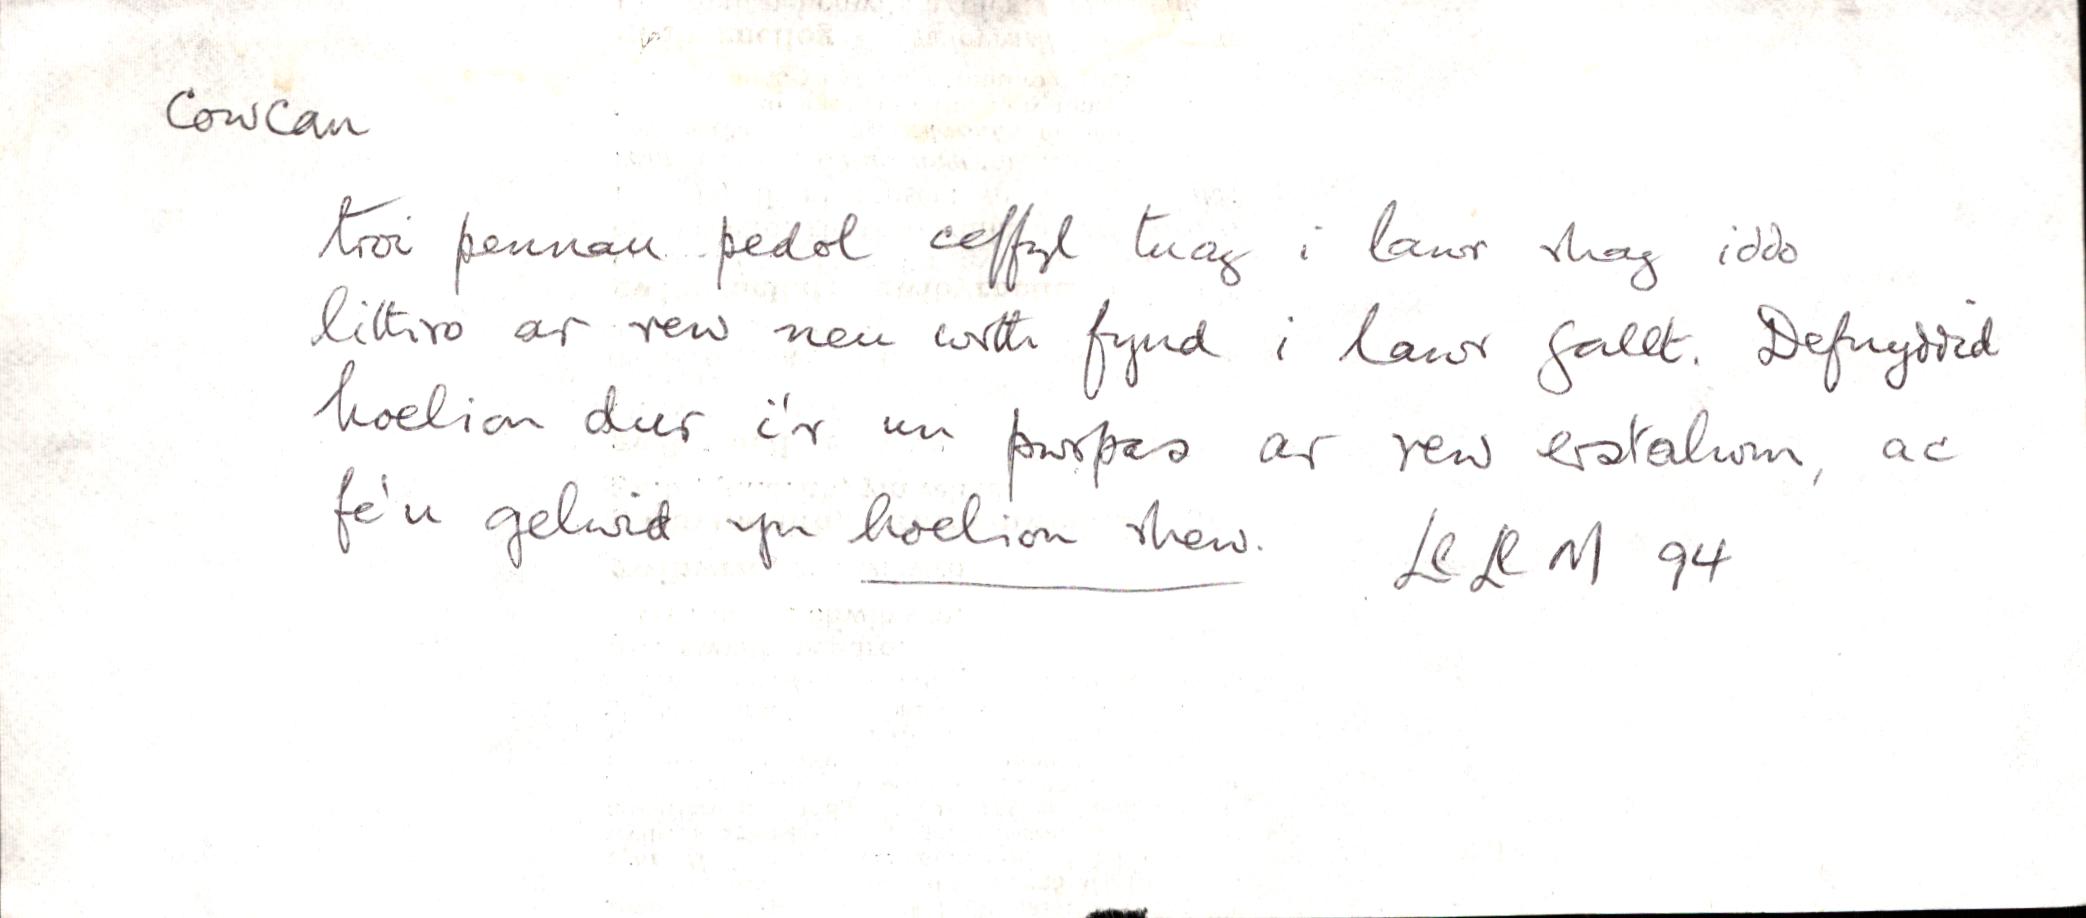 Cowcan
troi pennau pedol ceffyl tuag i lawr rhag iddo
lithro ar rew neu wrth fynd i lawr gallt. Defnyddid
hoelion dur i'r un pwrpas ar rew erstalwm, ac
fe'u gelwid yn hoelion rhew. Ll Ll M 94